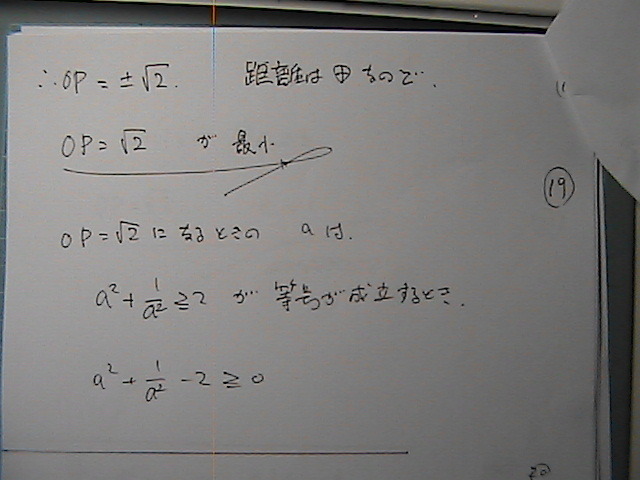 ∴OP = ±√2. 距離は ⊕ なので.
OP = √2 が 最小
⑲
OP = √2 になるときの aは.
a² + 1/a² ≧ 2 が 等号が成立するとき.
a² + 1/a² - 2 ≧ 0